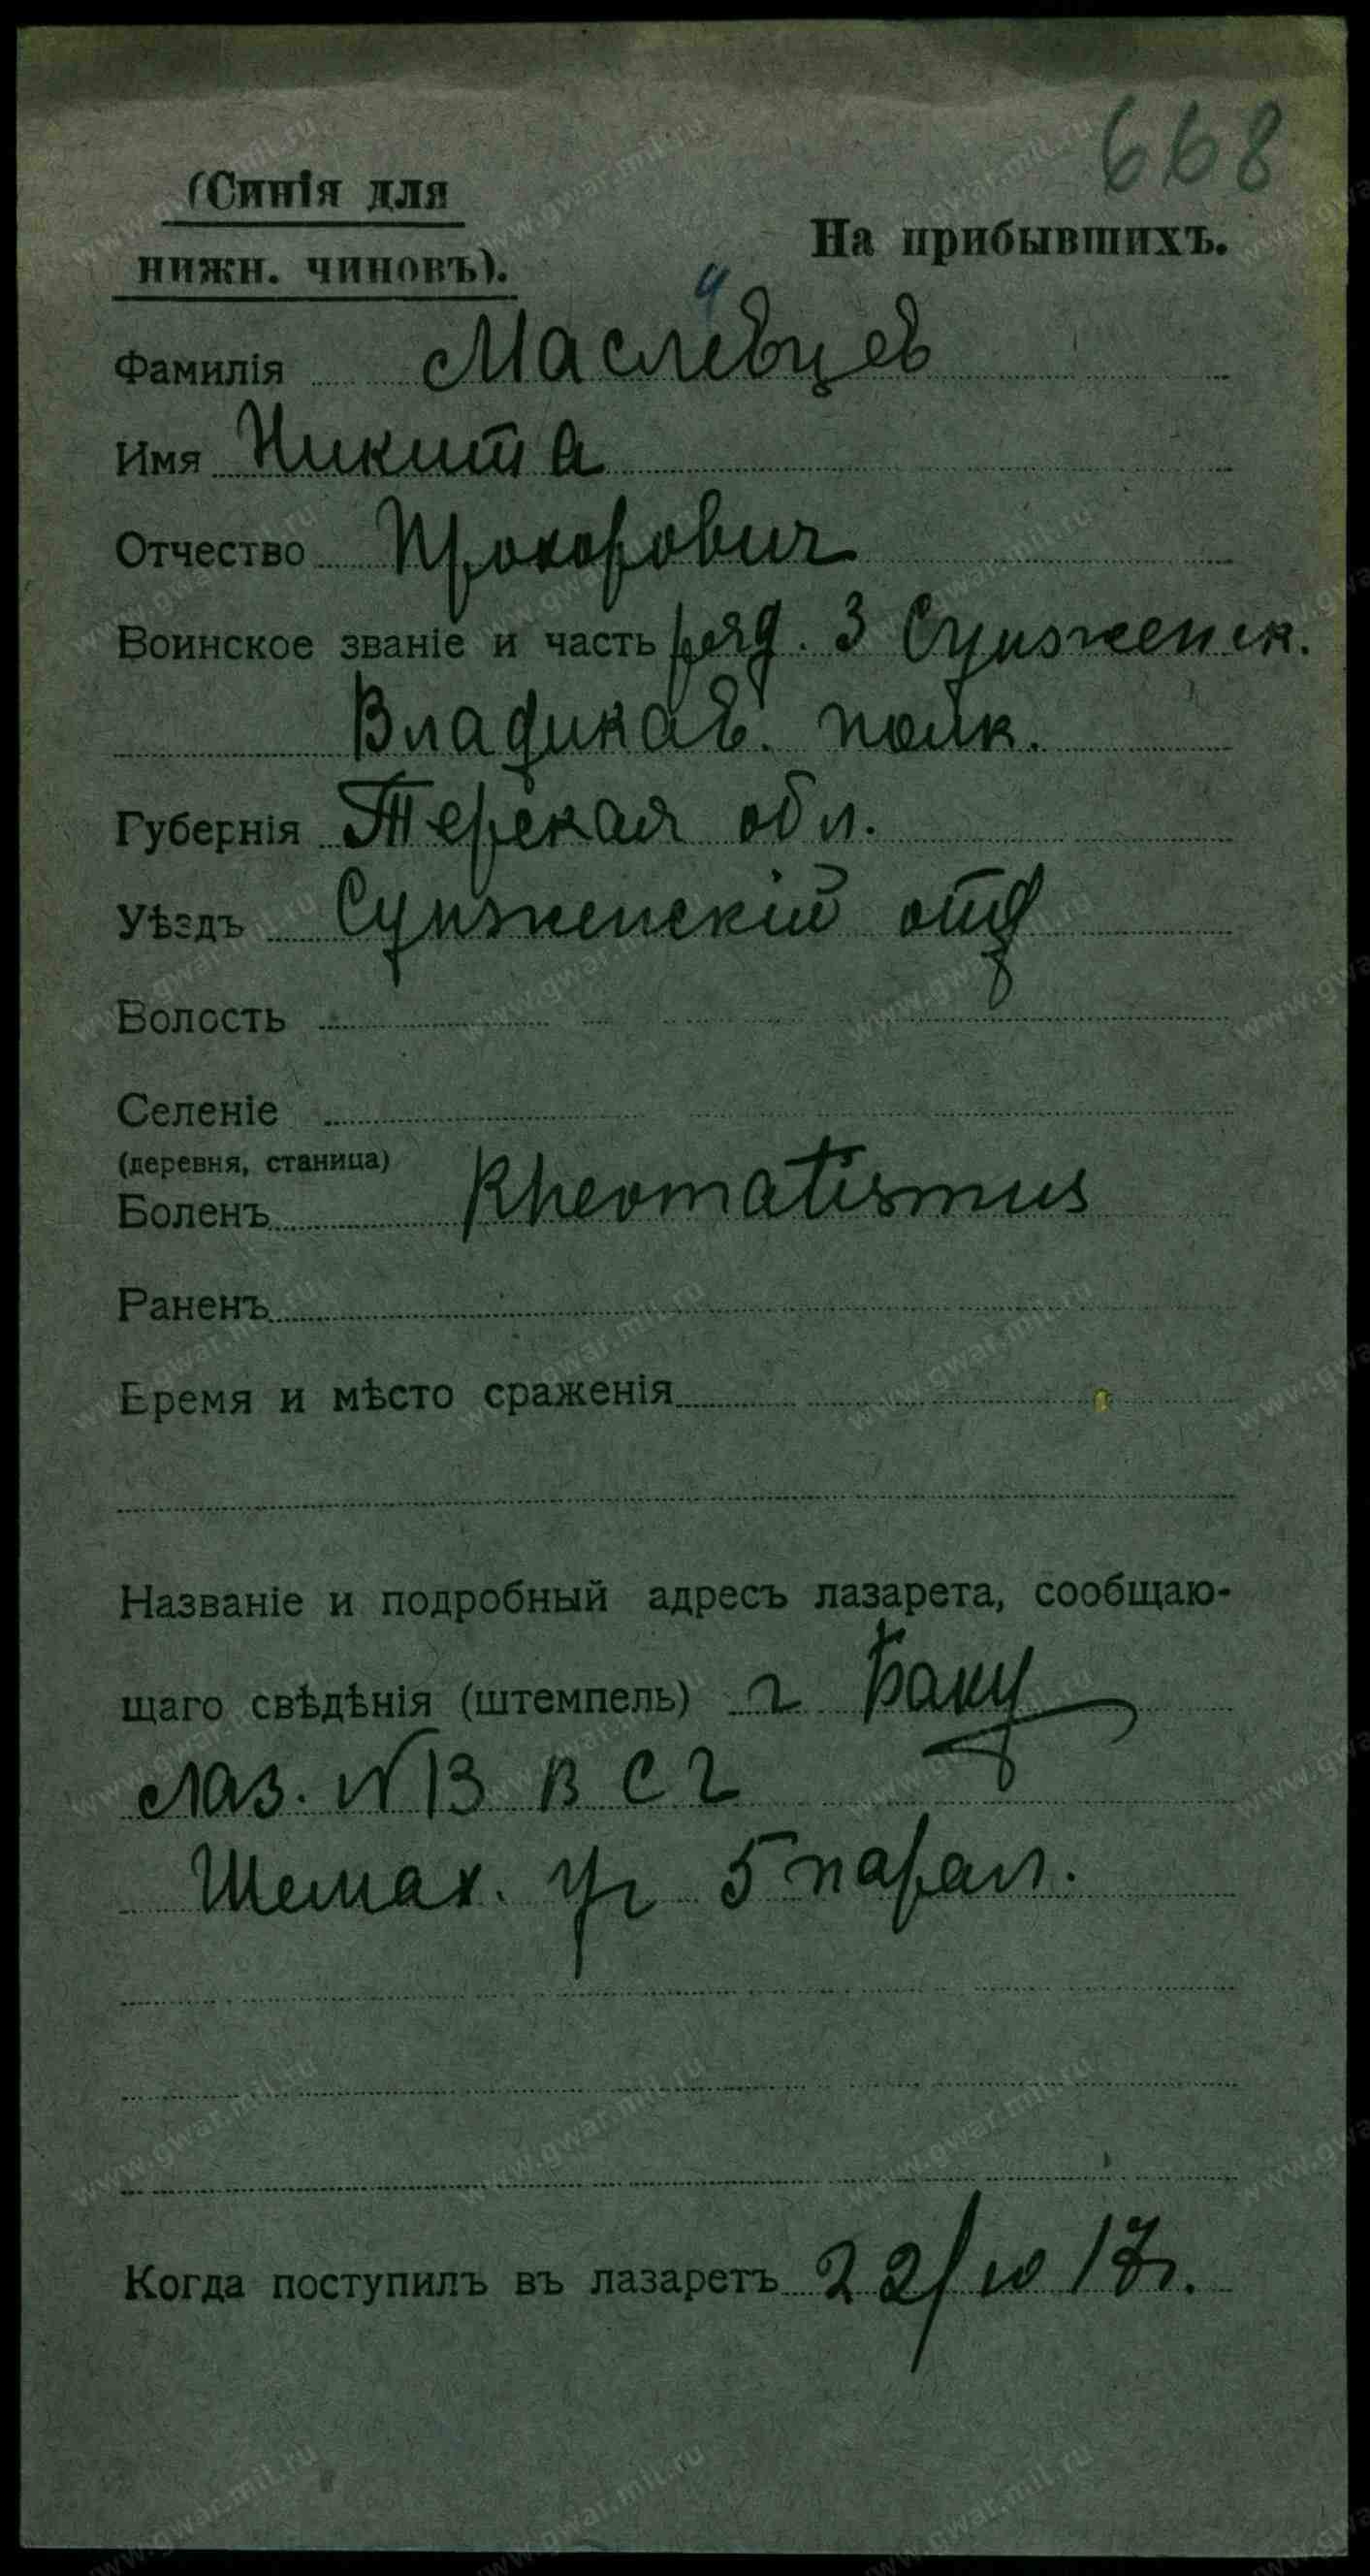 668
(Синія для
На прибывшихъ.
нижн. чиновъ).
Фамилія Маслевцев
Имя Никита
Отчество Прохорович
Воинское званіе и часть ряд. 3 Сунженск.
Владикав. полк.
Губернія Терская обл.
Уѣздъ Сунженскій отд
Волость
Селеніе
(деревня, станица)
Боленъ Rheomatismus
Раненъ
Время и мѣсто сраженія
Названіе и подробный адресъ лазарета, сообщаю-
щаго свѣдѣнія (штемпель) г Баку
Лаз. №13 В С Г
Шемах. уг 5 парал.
Когда поступилъ въ лазаретъ 22/10 17г.